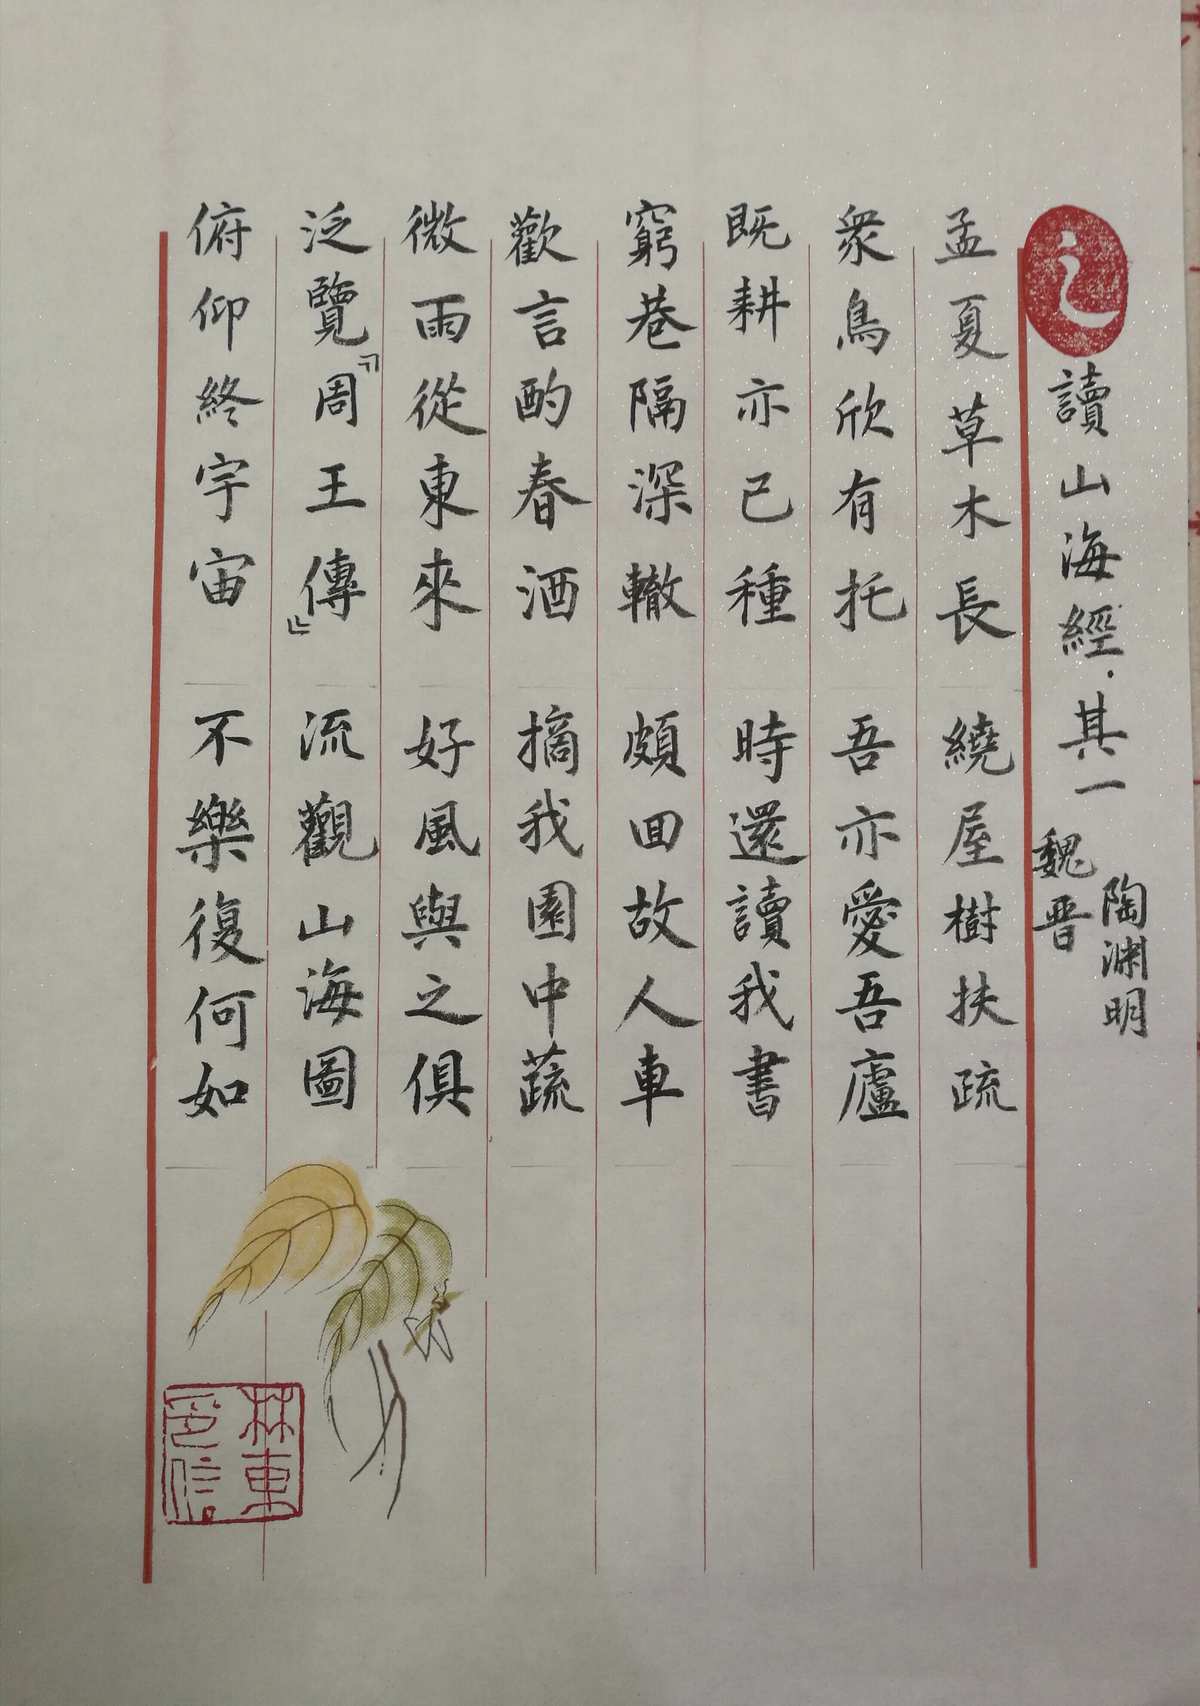 讀山海經·其一
魏晉
陶渊明
孟夏草木長 繞屋樹扶疏
衆鳥欣有托 吾亦愛吾廬
既耕亦已種 時還讀我書
窮巷隔深轍 頗回故人車
歡言酌春酒 摘我園中蔬
微雨從東來 好風與之俱
泛覽『周王傳』 流觀山海圖
俯仰終宇宙 不樂復何如
林東
印信